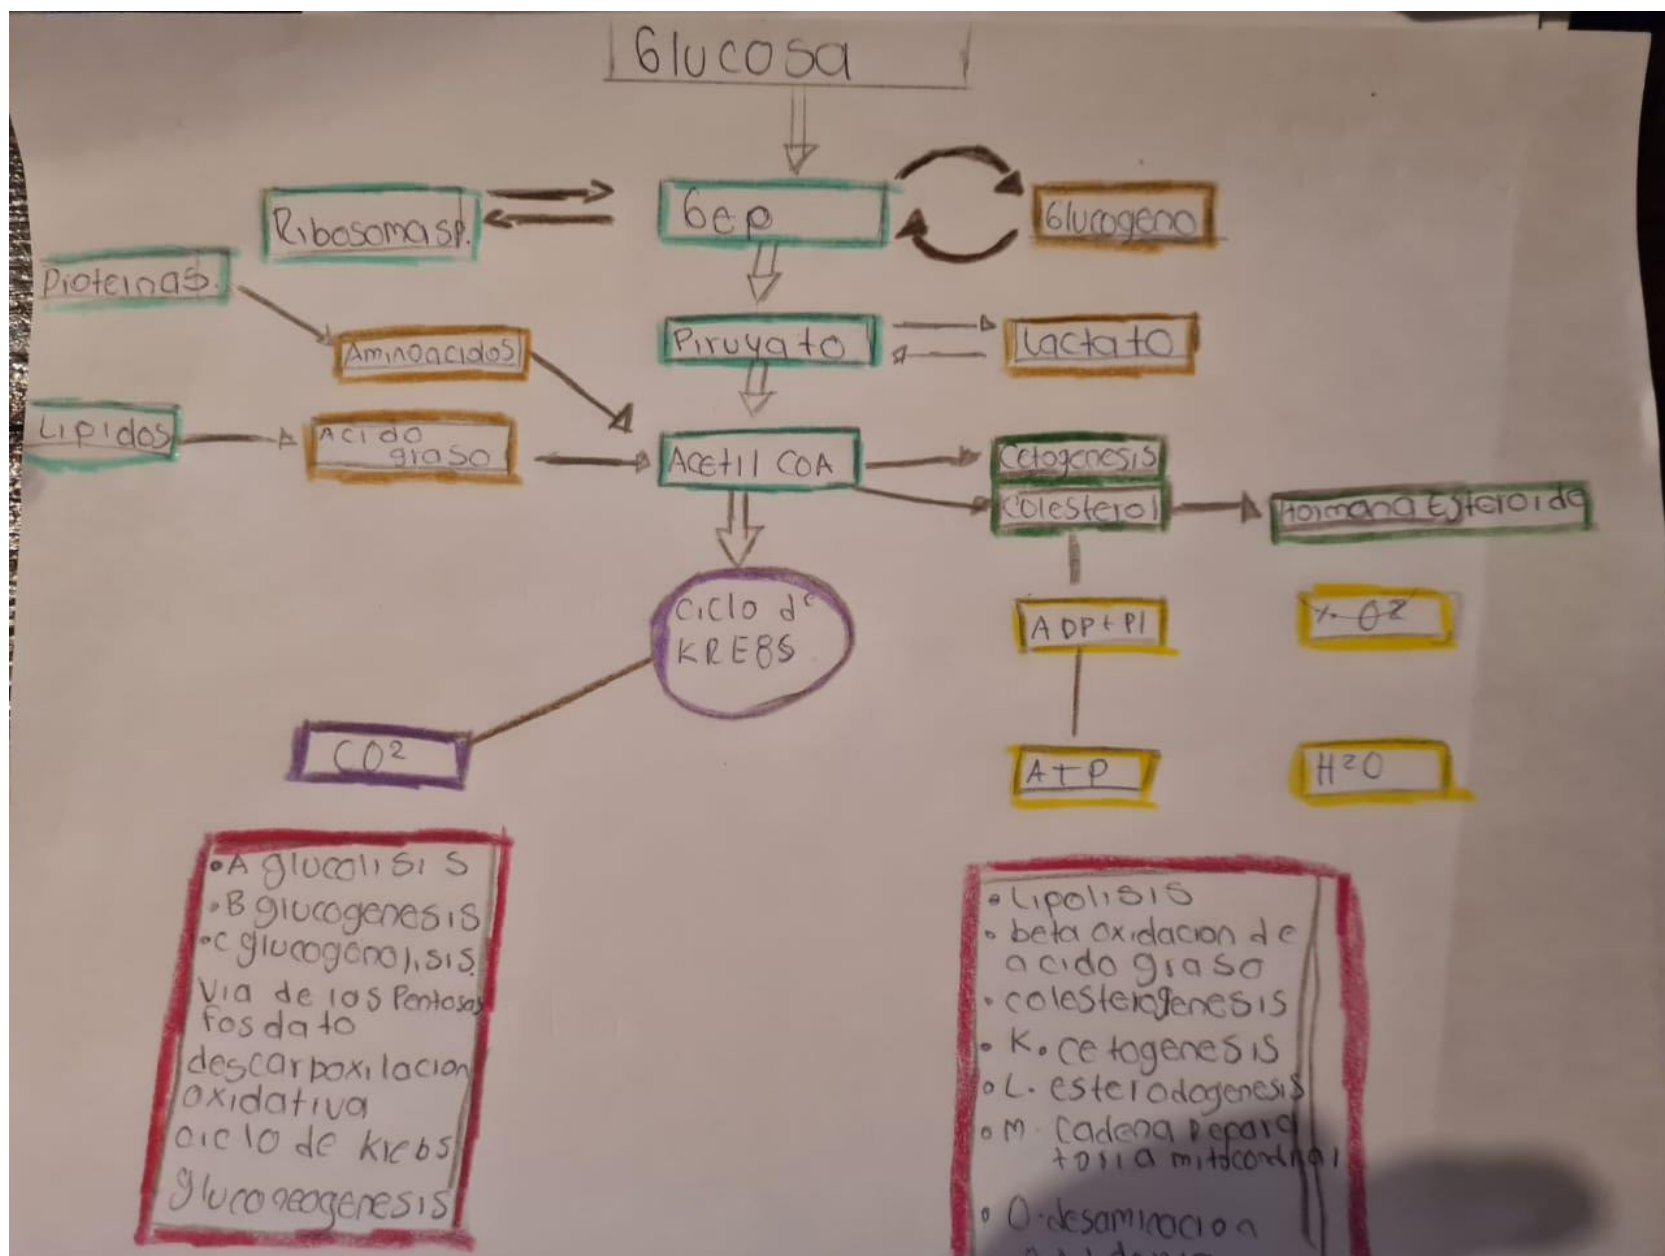 Glucosa
Ribosomasp.
Gep
Glucogeno
Proteinas.
Aminoacidos
Piruyato
Lactato
Lipidos
Acido
graso
Acetil COA
Cetogenesis
Colesterol
Hormona Esteroide
ciclo de
KREBS
ADP+PI
CO²
ATP
H²O
• A glucolisis
• B glucogenesis
• C glucogenolisis.
Via de los Pentosas
fosdato
descarboxilacion
oxidativa
ciclo de Krebs
gluconeogenesis
• Lipolisis
• beta oxidacion de
acido graso
• colesterogenesis
• K. cetogenesis
• L. esterodogenesis
• M. cadena
mitocondrial
• O. desaminacion